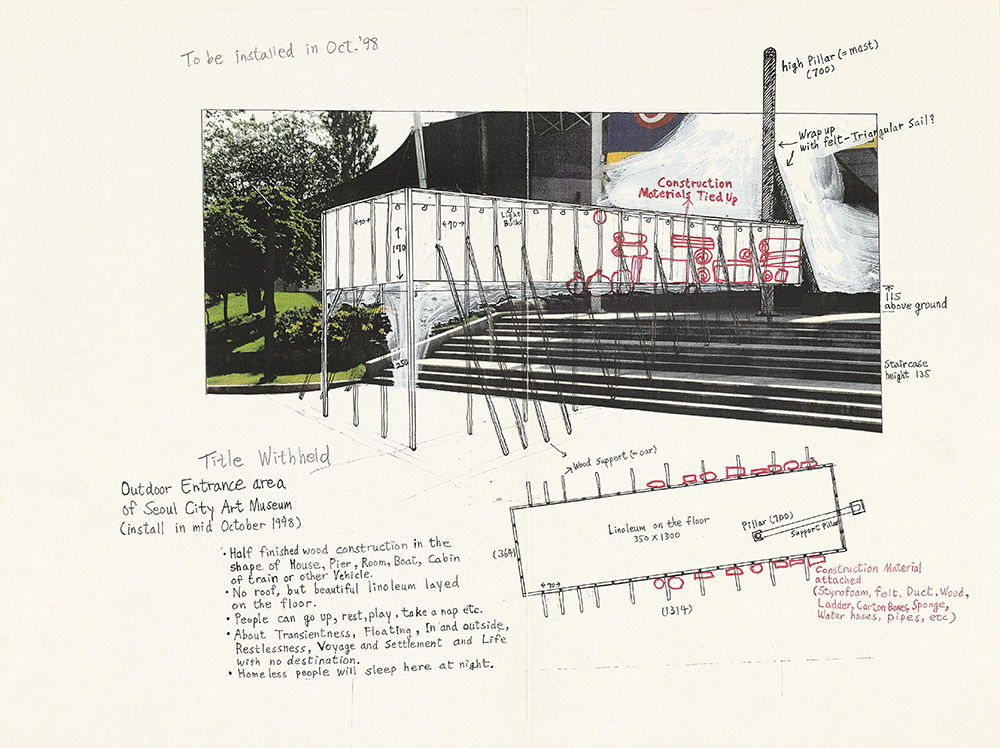 To be installed in Oct.'98
high Pillar (= mast)
(700)
Wrap up
with felt-Triangular Sail?
Construction
Materials Tied Up
Light
Bulbs
←70→
←70→
170
250
115
above ground
Staircase
height 135
Title Withheld
Outdoor Entrance area
of Seoul City Art Museum
(install in mid October 1998)
• Half finished wood construction in the
shape of House, Pier, Room, Boat, Cabin
of train or other Vehicle.
• No roof, but beautiful linoleum layed
on the floor.
• People can go up, rest, play, take a nap etc.
• About Transientness, Floating, In and outside,
Restlessness, Voyage and Settlement and Life
with no destination.
• Homeless people will sleep here at night.
Wood Support (= oar)
Linoleum on the floor
350 x 1300
Pillar (700)
Support Pillar
(364)
←70→
(1314)
Construction Material
attached
(Styrofoam, felt, Duct, Wood,
Ladder, Carton Boxes, Sponge,
Water hoses, pipes, etc)